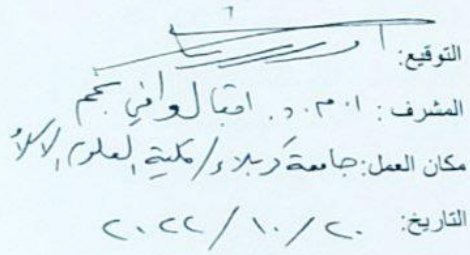 التوقيع:
المشرف: ا. م. د. اقبال وافي نجم
مكان العمل: جامعة كربلاء / كلية العلوم الاسلا
التاريخ: ٢٠ / ١٠ / ٢٠٢٢